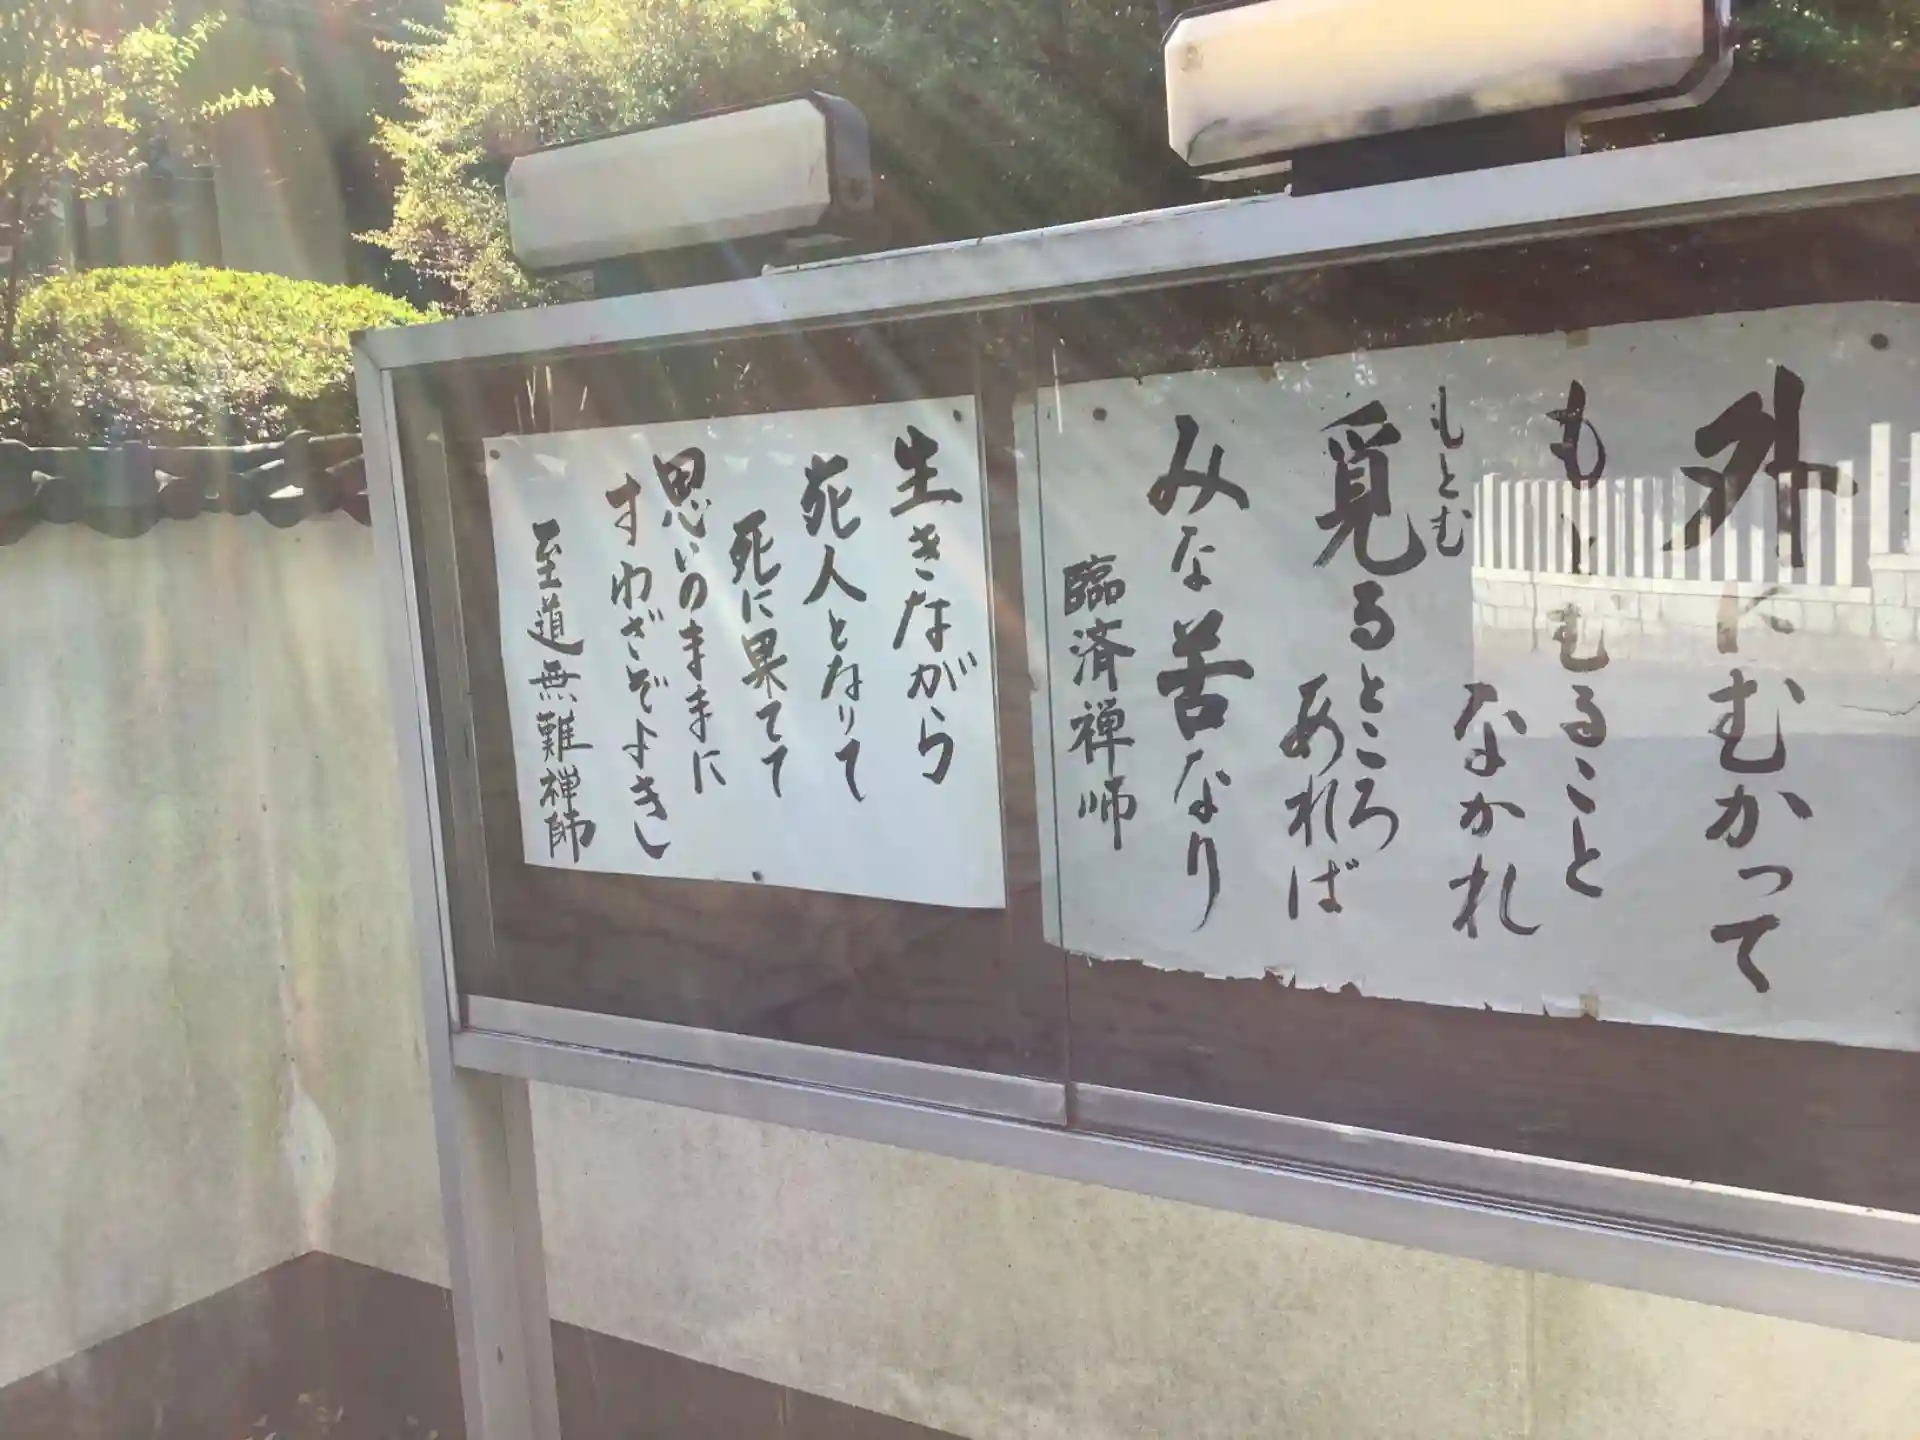 外にむかって
もとむること
なかれ
もとむ
覓るところ
あれば
みな苦なり
臨済禅师
生きながら
死人となりて
死に果てて
思いのままに
すわざぞよきし
至道無難禅師